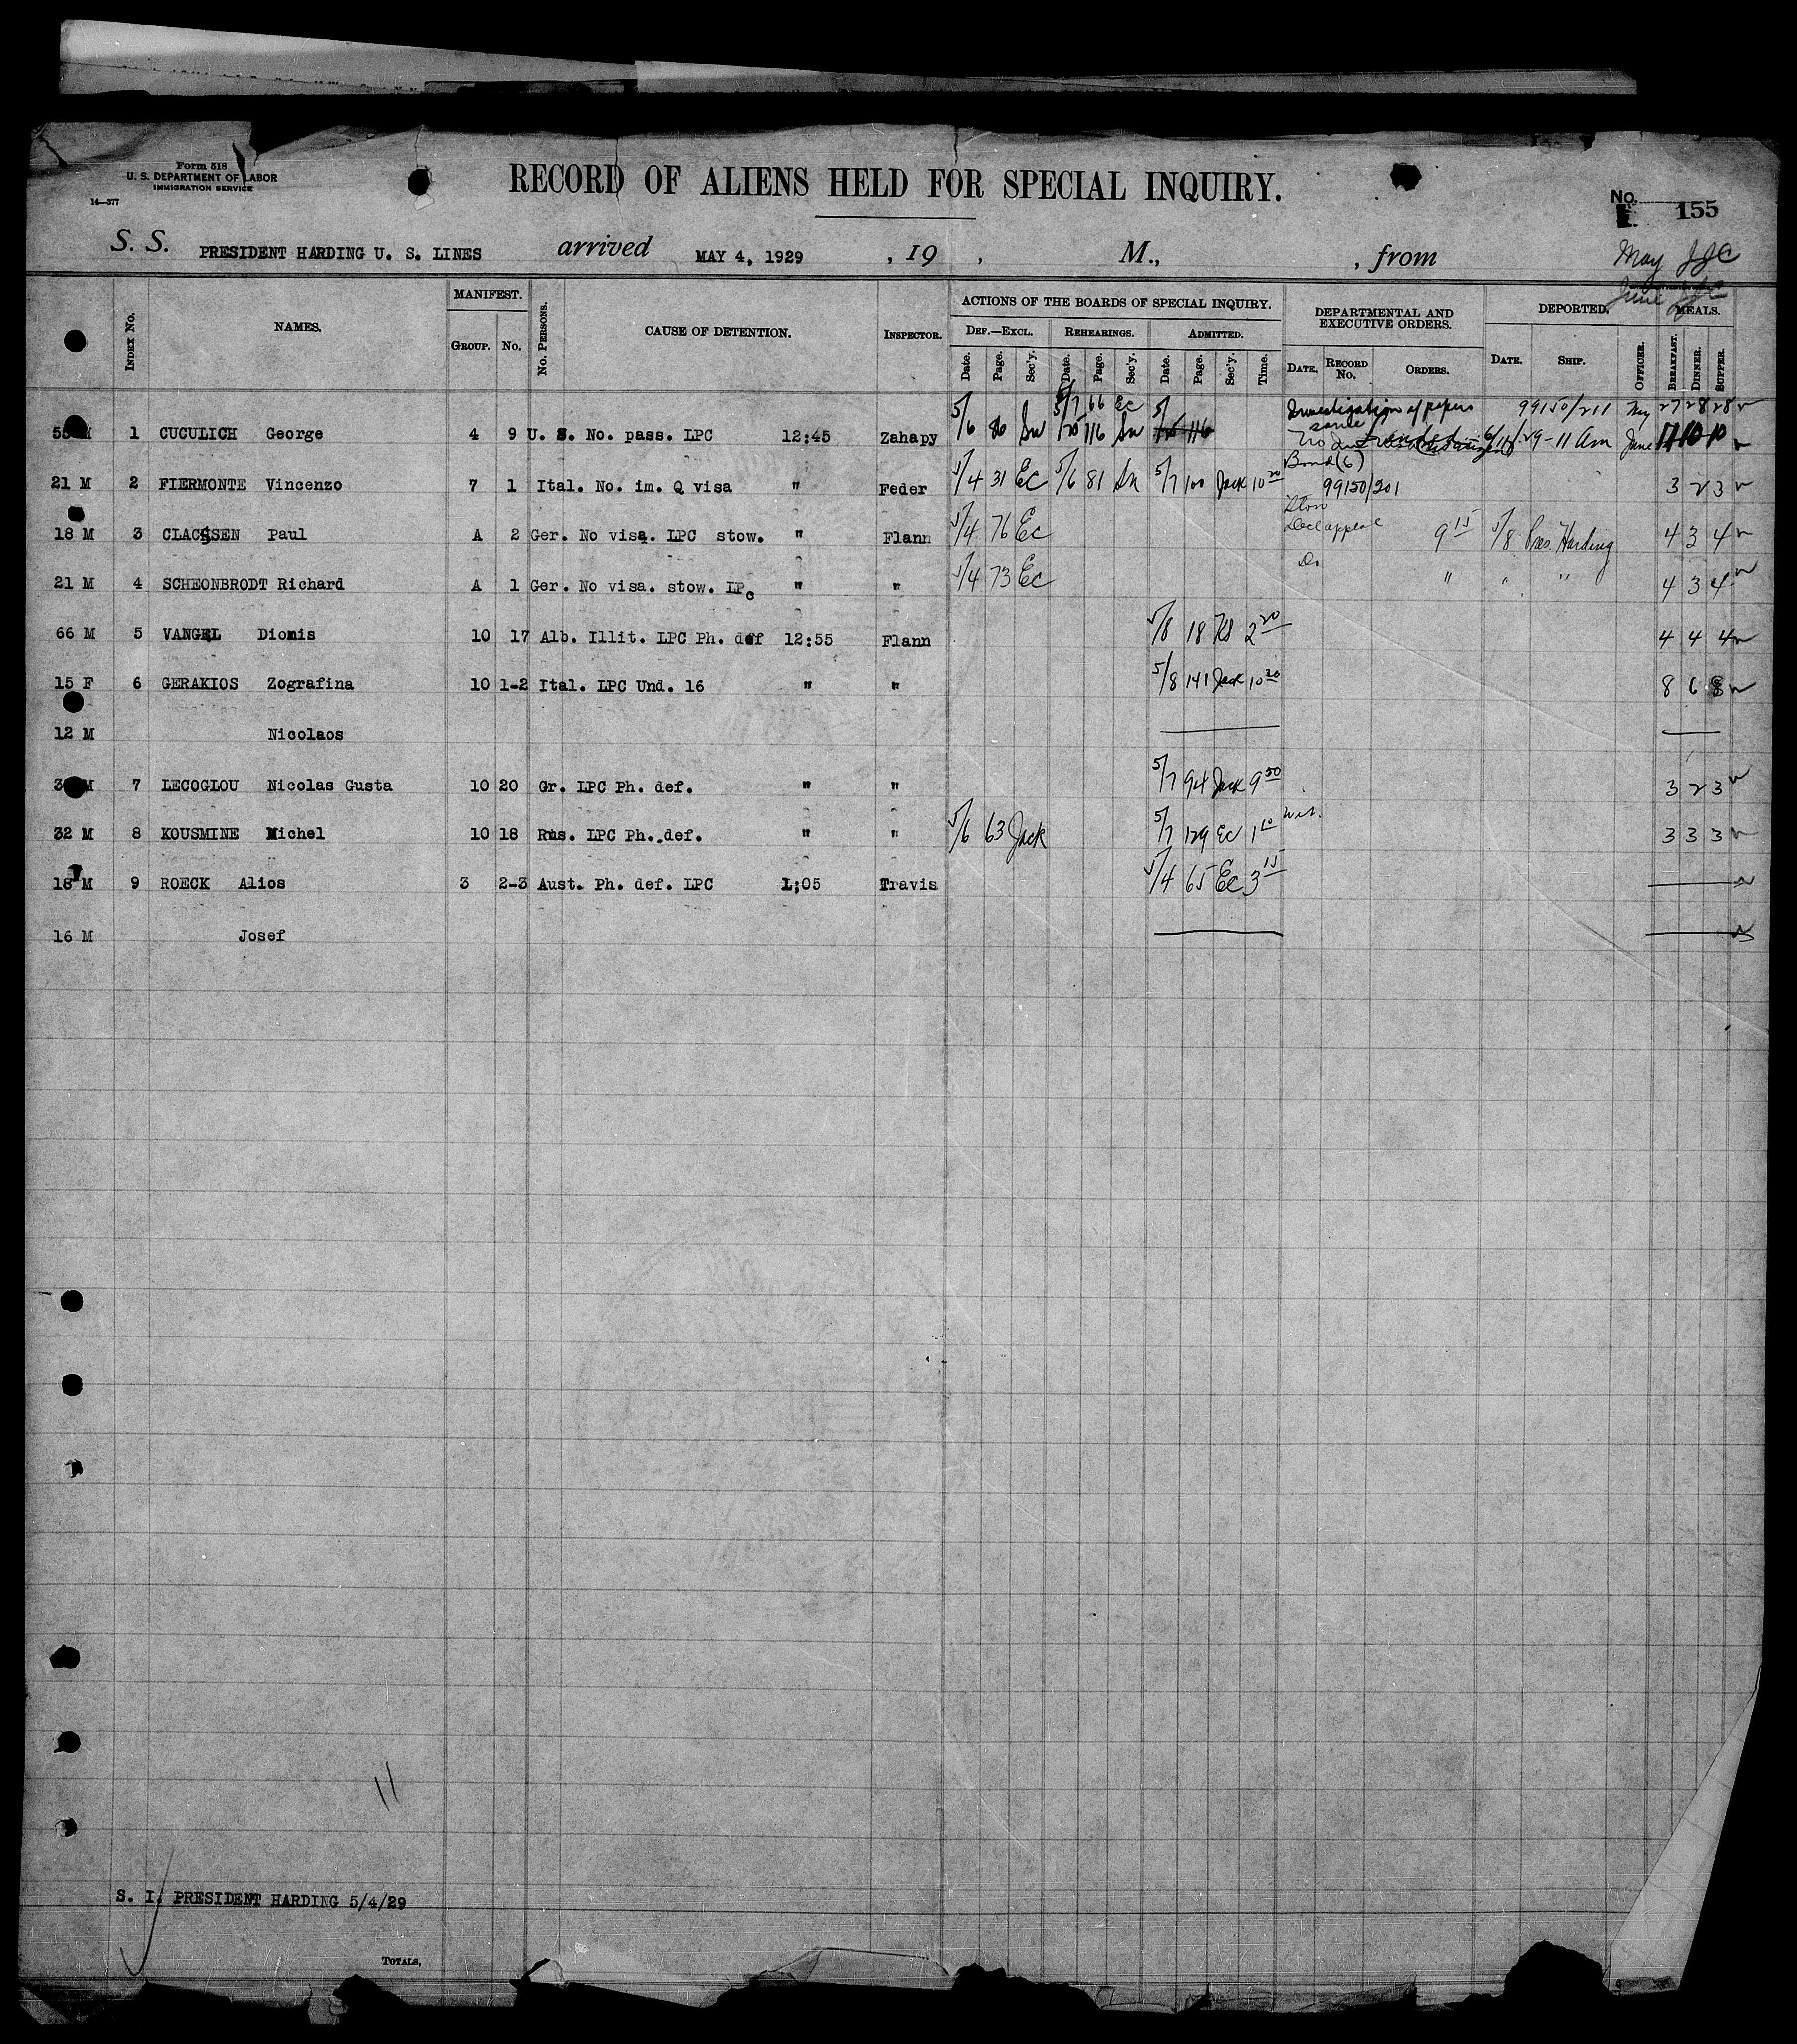 Form 518
U. S. DEPARTMENT OF LABOR
IMMIGRATION SERVICE
14—377
RECORD OF ALIENS HELD FOR SPECIAL INQUIRY.
No. 155
S. S. PRESIDENT HARDING U. S. LINES arrived MAY 4, 1929 , 19 , M., , from
May JJC
June
INDEX No. NAMES. MANIFEST. GROUP. No. No. PERSONS. CAUSE OF DETENTION. INSPECTOR. ACTIONS OF THE BOARDS OF SPECIAL INQUIRY. DEF.—EXCL. REHEARINGS. ADMITTED. DEPARTMENTAL AND EXECUTIVE ORDERS. DEPORTED. MEALS.
Date. Page. Sec'y. Date. Page. Sec'y. Date. Page. Sec'y. Time. DATE. RECORD No. ORDERS. DATE. SHIP. OFFICER. BREAKFAST. DINNER. SUPPER.
5/7 66 Ec Investigation of papers 99150/211 May 27 28 28
M 1 CUCULICH George 4 9 U. S. No. pass. LPC 12:45 Zahapy 5/6 80 116 116 29-11 am June 17 10 10
Bond (6)
21 M 2 FIERMONTE Vincenzo 7 1 Ital. No. im. Q visa " Feder 5/4 31 Ec 5/6 81 5/7 100 Jack 10 20 99150/201 3 2 3
18 M 3 CLACSSEN Paul A 2 Ger. No visa. LPC stow. " Flann 5/4 76 Ec appeal 9 15 5/8 Pres. Harding 4 3 4
21 M 4 SCHEONBRODT Richard A 1 Ger. No visa. stow. LPc " " 5/4 73 Ec Do " " " 4 3 4
66 M 5 VANGEL Dionis 10 17 Alb. Illit. LPC Ph. def 12:55 Flann 5/8 18 KS 2 20 4 4 4
15 F 6 GERAKIOS Zografina 10 1-2 Ital. LPC Und. 16 " " 5/8 141 Jack 10 30 8 6 8
12 M Nicolaos
M 7 LECOGLOU Nicolas Gusta 10 20 Gr. LPC Ph. def. " " 5/7 94 Jack 9 50 3 2 3
32 M 8 KOUSMINE Michel 10 18 Rus. LPC Ph. def. " " 5/6 63 Jack 5/7 129 Ec 1 10 3 3 3
18 M 9 ROECK Alios 3 2-3 Aust. Ph. def. LPC 1;05 Travis 5/4 65 Ec 3 15
16 M Josef
11
S. I. PRESIDENT HARDING 5/4/29
TOTALS,